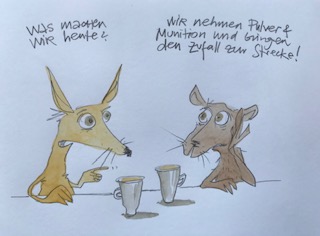 Was machen
wir heute?
Wir nehmen Pulver &
Munition und bringen
den Zufall zur Strecke!